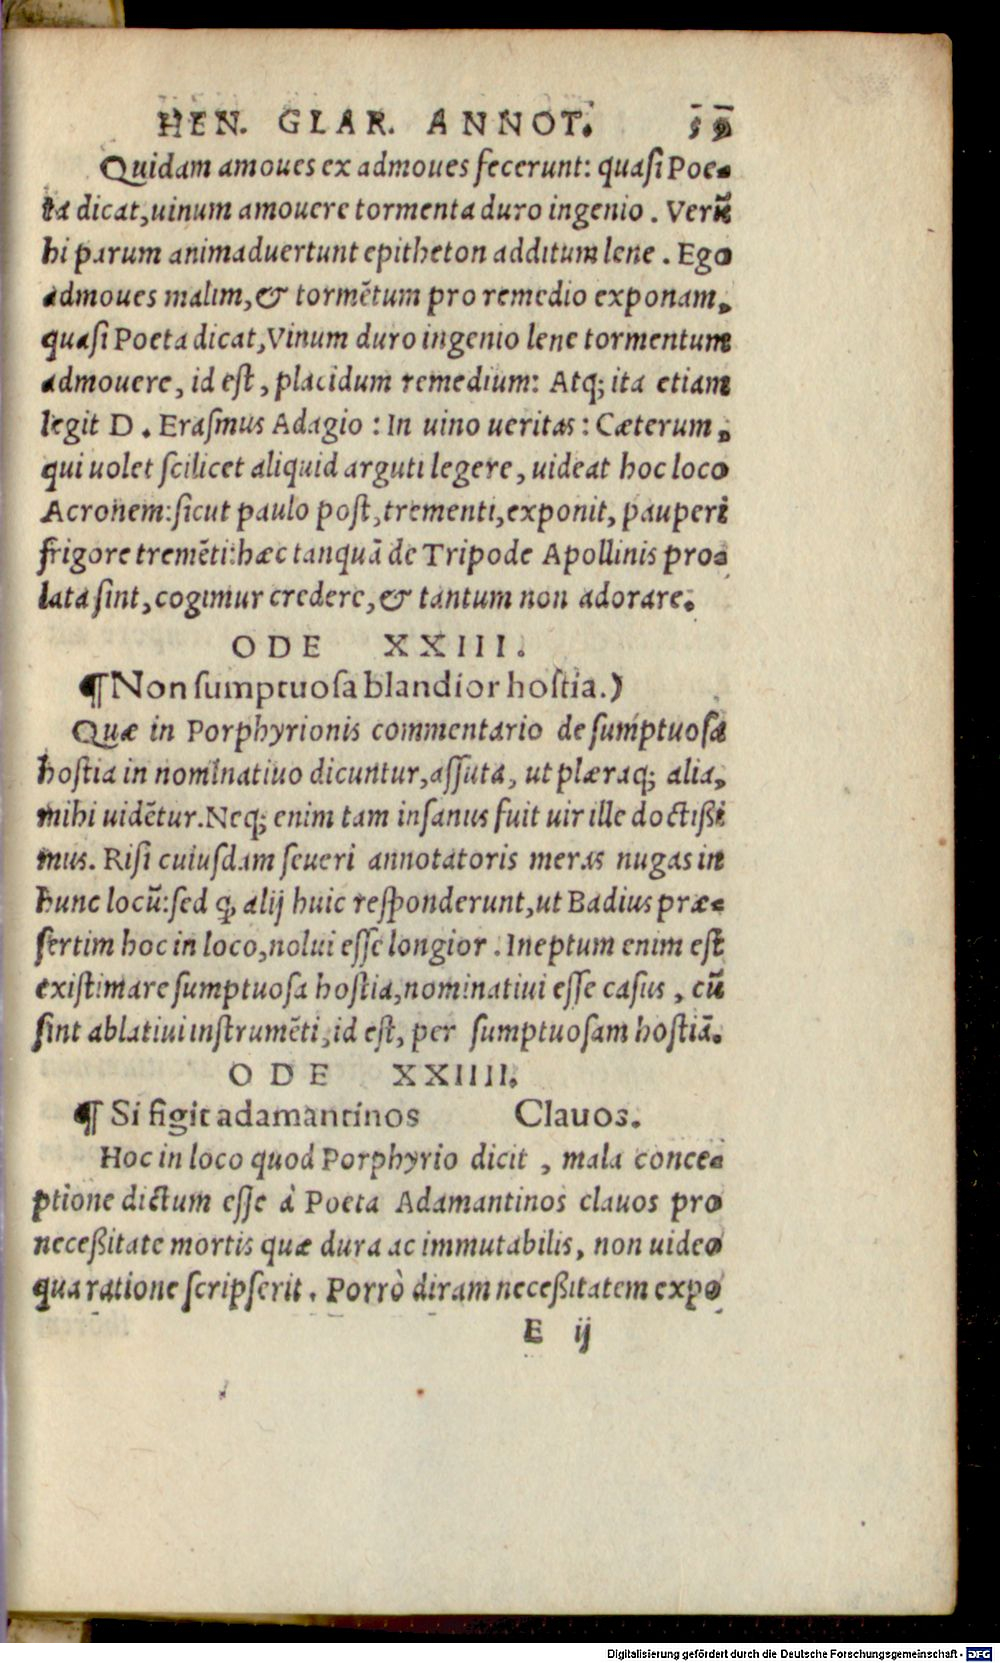 HEN. GLAR. ANNOT.
Quidam amoues ex admoues fecerunt: quasi Poe-
ta dicat, uinum amouere tormenta duro ingenio. Verũ
hi parum animaduertunt epitheton additum lene. Ego
admoues malim, & tormẽtum pro remedio exponam,
quasi Poeta dicat, Vinum duro ingenio lene tormentum
admouere, id est, placidum remedium: Atq; ita etiam
legit D. Erasmus Adagio: In uino ueritas: Cæterum,
qui uolet scilicet aliquid arguti legere, uideat hoc loco
Acronem: sicut paulo post, trementi, exponit, pauperi
frigore tremẽti: hæc tanquã de Tripode Apollinis pro-
lata sint, cogimur credere, & tantum non adorare.
ODE XXIII.
¶ Non sumptuosa blandior hostia.)
Quæ in Porphyrionis commentario de sumptuosa
hostia in nominatiuo dicuntur, assuta, ut plæraq; alia,
mihi uidẽtur. Neq; enim tam insanus fuit uir ille doctißi
mus. Risi cuiusdam seueri annotatoris meras nugas in
hunc locũ: sed ꝙ alij huic responderunt, ut Badius præ-
sertim hoc in loco, nolui esse longior. Ineptum enim est
existimare sumptuosa hostia, nominatiui esse casus, cũ
sint ablatiui instrumẽti, id est, per sumptuosam hostiã.
ODE XXIIII.
¶ Si figit adamantinos Clauos.
Hoc in loco quod Porphyrio dicit, mala conce-
ptione dictum esse à Poeta Adamantinos clauos pro
neceßitate mortis quæ dura ac immutabilis, non uideo
qua ratione scripserit. Porrò diram neceßitatem expo
E ij
Digitalisierung gefördert durch die Deutsche Forschungsgemeinschaft - DFG